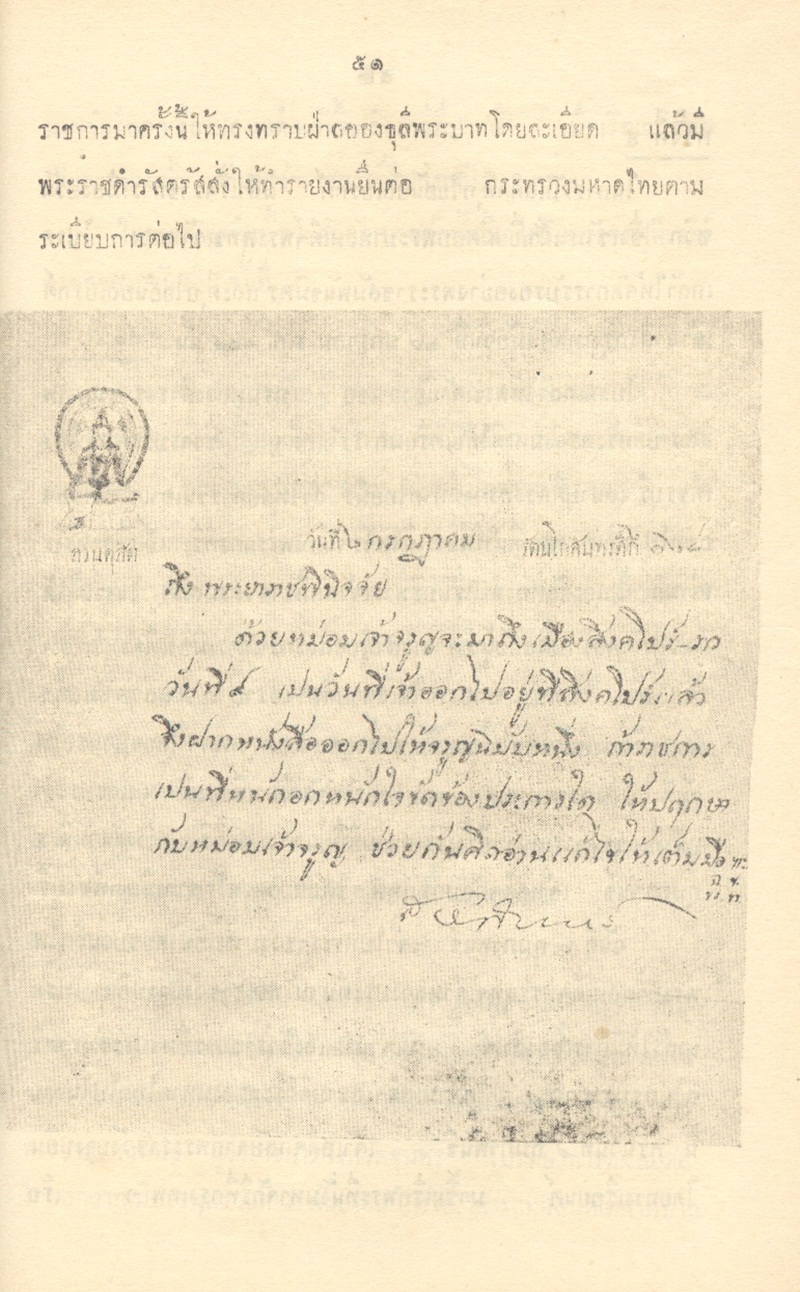 ๕๑
ราชการมาครั้งนี้ให้ทรงทราบฝ่าลอองธุลีพระบาทโดยละเอียด แล้วมี
พระราชดำรัสตรัสสั่งให้ทำรายงานยื่นต่อ กระทรวงมหาดไทยตาม
ระเบียบการต่อไป
สวนดุสิต
วันที่ ๒ กรกฎาคม รัตนโกสินทรศก ๑๒๘
ถึง พระยาภชพินิจจัย
ด้วยหม่อมเจ้าจรูญจะมาถึงเมืองสิงคโปร์
วันที่ ๔ เป็นวันที่เจ้าออกไปอยู่ที่สิงคโปร์แล้ว
จึงฝากหนังสือออกไปให้จรูญฉบับหนึ่ง ถ้าราชการ
เป็นที่หนักอกหนักใจขัดข้องประการใด ให้ปฤกษา
กับหม่อมเจ้าจรูญ ช่วยกันคิดอ่านแก้ไขให้เต็มมือ